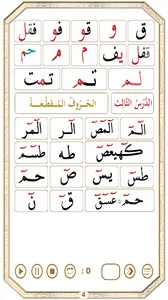 ق و قو فو فقل
فقل يف م م حم
لم تم تمت
الدَّرْسُ الثَّالِثُ الْحُرُوفُ الْمُقَطَّعَةُ
الٓمّٓ الٓمّٓصٓ الٓرٰ الٓمّٓرٰ
كٓهٰيٰعٓصٓ طٰهٰ طٰسٓمّٓ
طٰسٓ يٰسٓ صٓ حٰمٓ
حٰمٓ عٓسٓقٓ قٓ نٓ
: 0
4